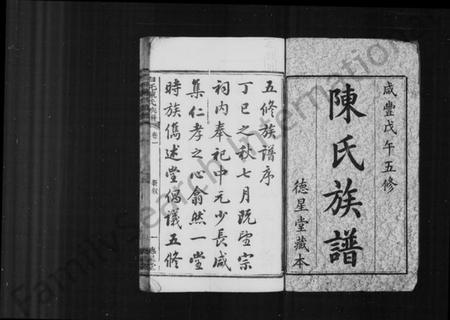 咸豐戊午五修
陳氏族譜
德星堂藏本
五修族譜序
丁巳之秋七月既望宗
祠内奉祀中元少長咸
集仁孝之心翕然一堂
時族儁述堂偶議五修
卷一
FamilySearch International